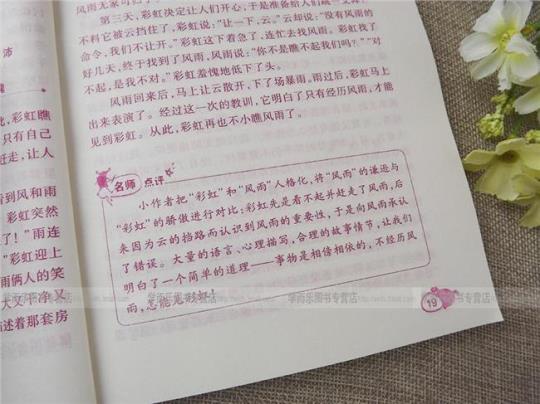 风雨无家可归了
第三天，彩虹决定让人们开心，于是准备给人们
不料它被云挡住了，彩虹说：“让一下，云。”云却说：“没有风雨的
命令，我们不让开。”彩虹这下着急了，连忙去找风雨。彩虹找了
好几天，终于找到了风雨，风雨说：“你不是瞧不起我们吗？”“对
不起，是我不对。”彩虹羞愧地低下了头。
风雨回来后，马上让云散开，下了场暴雨，雨过后，彩虹马上
出来表演了。经过这一次的教训，它明白了只有经历风雨，才能
见到彩虹。从此，彩虹再也不小瞧风雨了。
名师 点评
小作者把“彩虹”和“风雨”人格化，将“风雨”的谦逊与
“彩虹”的骄傲进行对比：彩虹先是看不起并赶走了风雨，后
来因为云的挡路而认识到风雨的重要性，于是向风雨承认
了错误。大量的语言、心理描写，合理的故事情节，让我们
明白了一个简单的道理——事物是相偣相依的，不经历风
雨，怎能见彩虹！
19
沛
彩虹瞧
只有自己
赶走，让人
看到风和雨
彩虹突然
了！”雨连
”彩虹迎上
雨俩人的笑
大又干净又
描述着那套房
学而乐图书专营店